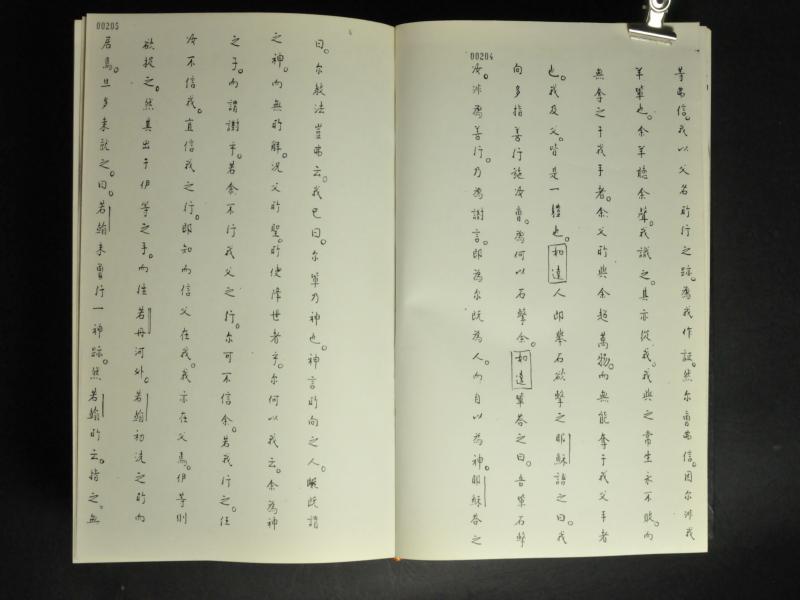 00204
等弗信。我以父名所行之跡。為我作証。然尔曹弗信。因尔非我
羊羣也。余羊聽余聲。我識之。其亦從我。我與之常生永不敗。而
無奪之于我手者。余父所與余超萬物。而無能奪于我父手者
也。我及父。皆是一體也。如達人即舉石欲擊之耶穌語之曰。我
向多指善行施汝曹。為何以石擊余。如達輩荅之曰。吾輩石擊
汝。非為善行。乃為謝言。即為尔既為人。而自以為神。耶穌荅之
00205
曰。尔教法豈弗云。我已曰。尔輩乃神也。神言所向之人。既謂
之神。而無所解。况父所聖。所使降世者乎。尔何以我云。余為神
之子。而謂謝乎。若余不行我父之行。尔可不信余。若我行之。任
汝不信我。宜信我之行。即知而信父在我。我亦在父焉。伊等則
欲捉之。然其出于伊等之手。而往若丹河外。若翰初洗之所而
居焉。旦多来就之。曰。若翰未曾行一神跡。然若翰所云。指之。無